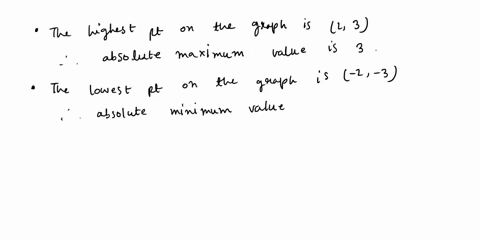 • The highest pt on the graph is (2, 3)
∴ absolute maximum value is 3.
• The lowest pt on the graph is (-2, -3)
∴ absolute minimum value